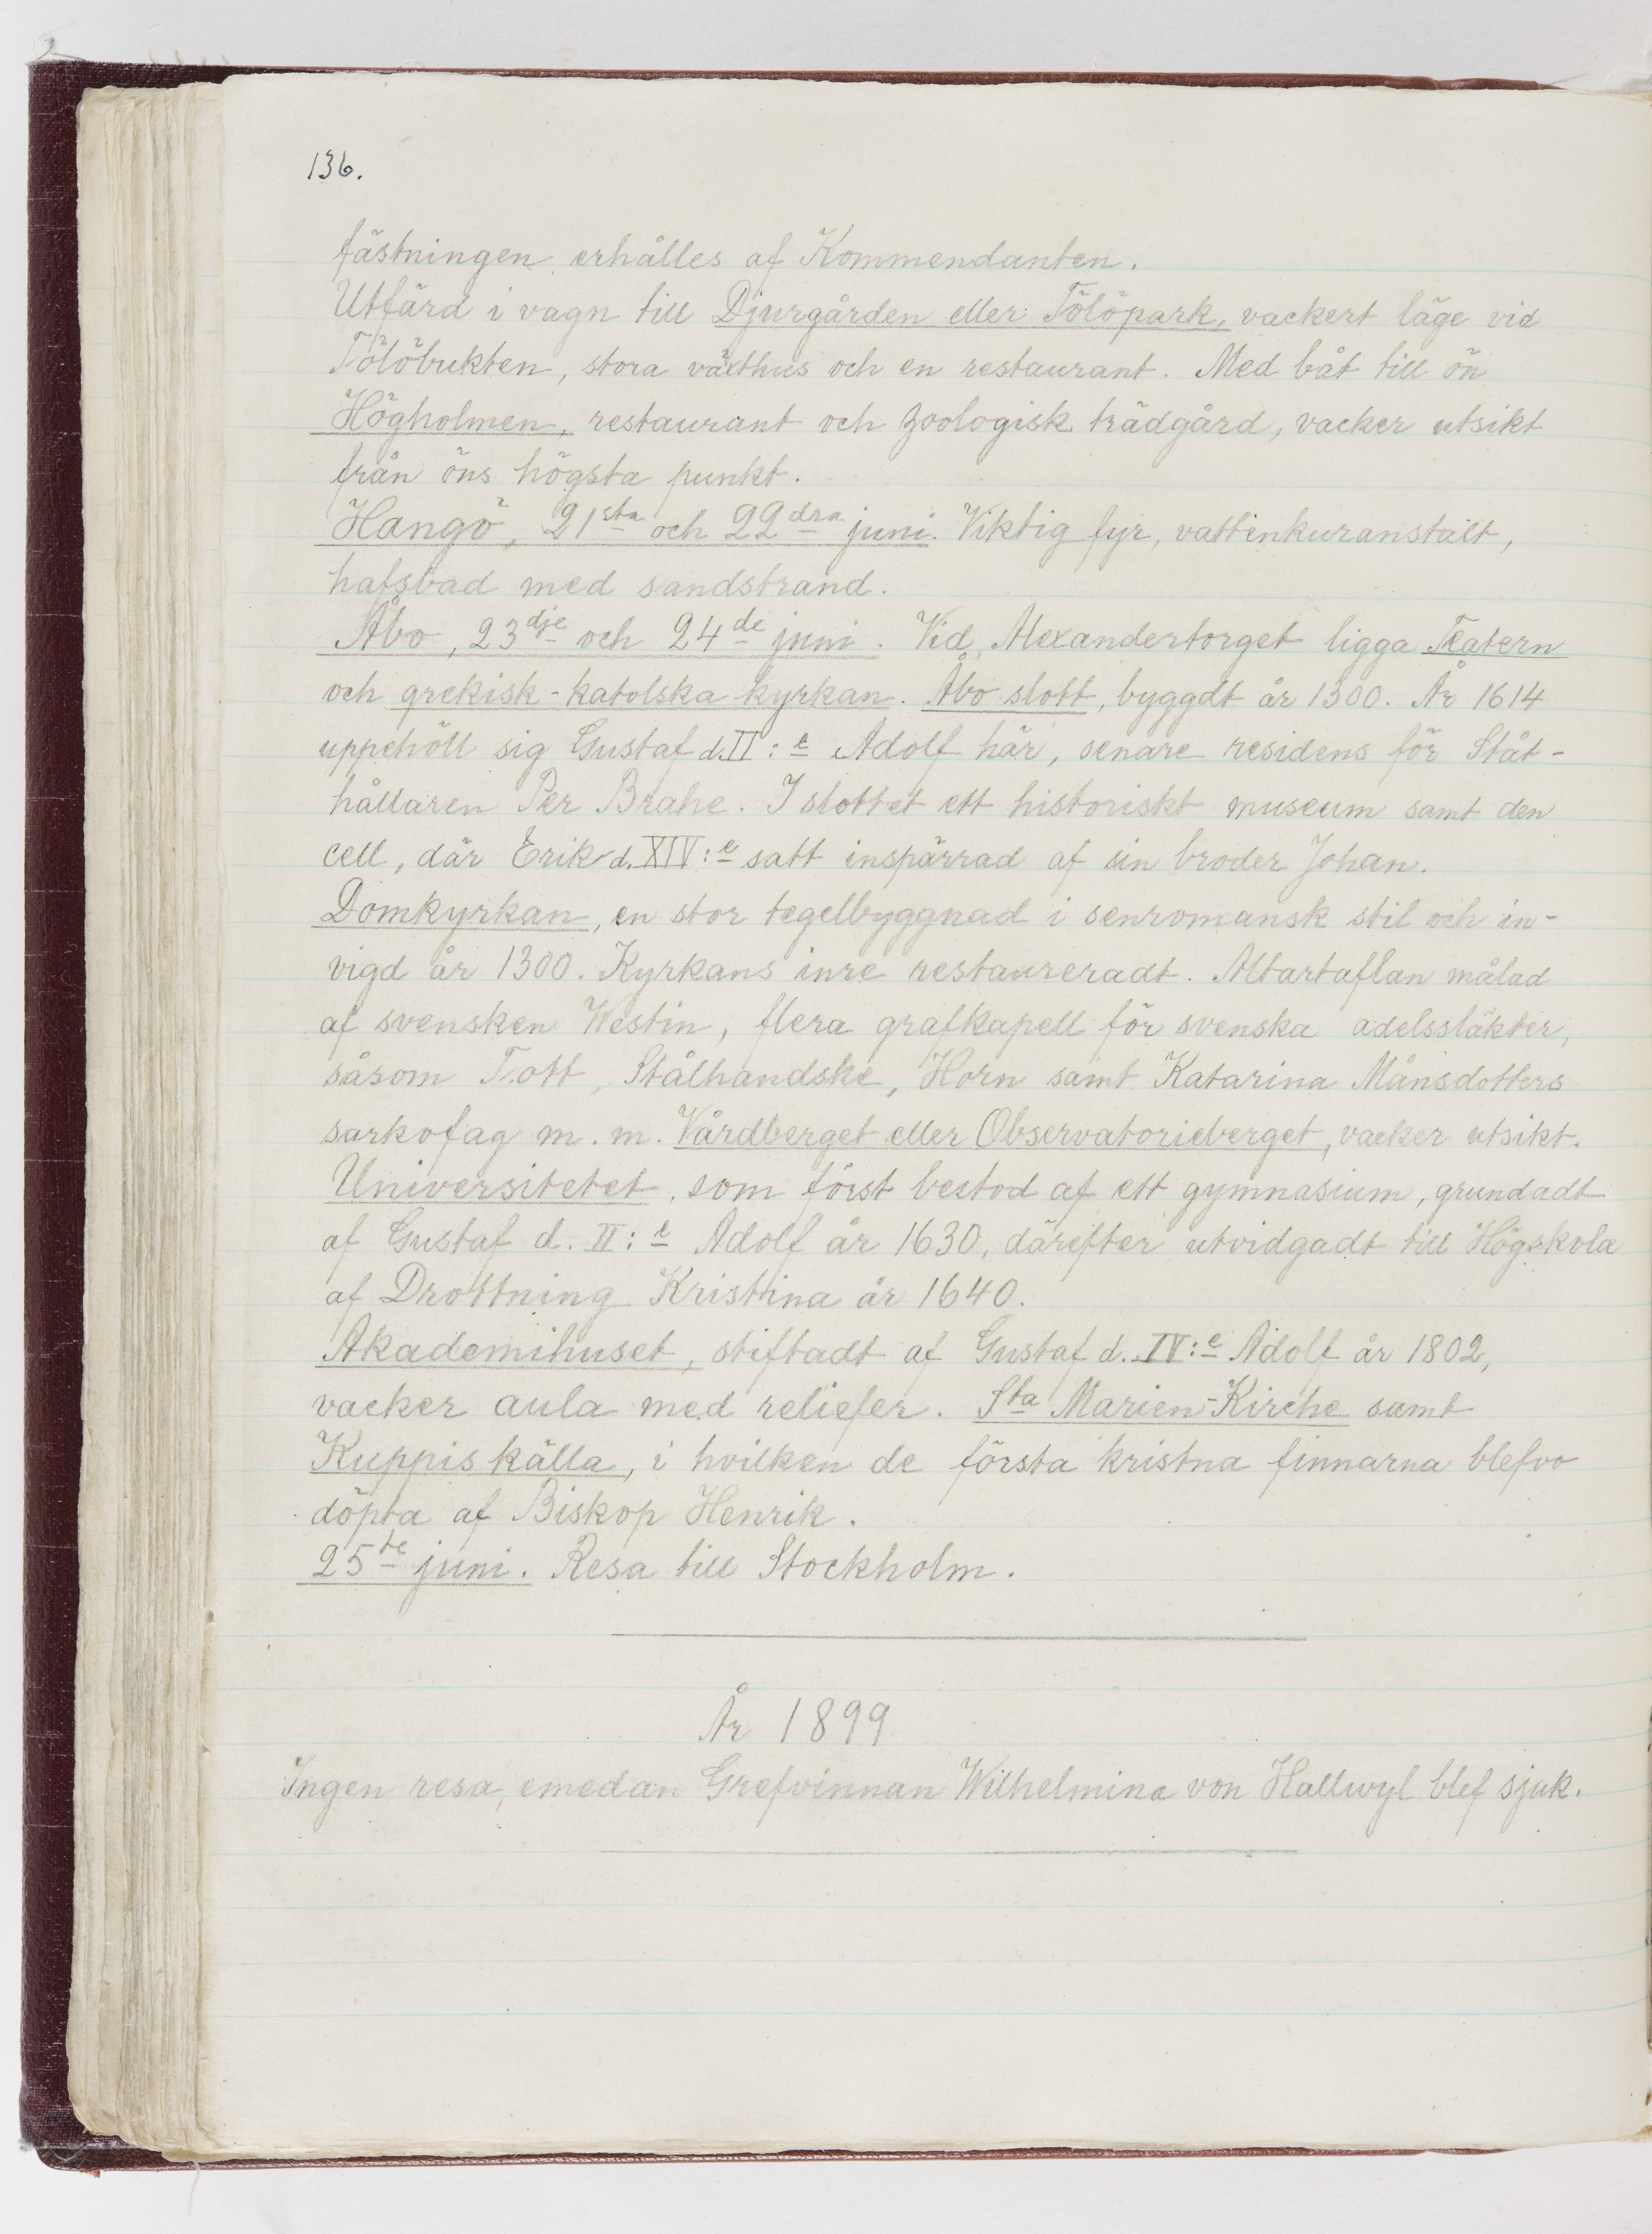 136.
fästningen erhålles af Kommendanten.
Utfärd i vagn till Djurgården eller Tölöpark, vackert läge vid
Tölöbukten, stora växthus och en restaurant. Med båt till ön
Högholmen, restaurant och zoologisk trädgård, vacker utsikt
från öns högsta punkt.
Hangö, 21sta och 22dra juni. Viktig fyr, vattenkuranstalt,
hafsbad med sandstrand.
Åbo, 23dje och 24de juni. Vid Alexandertorget ligga Teatern
och grekisk-katolska kyrkan. Åbo slott, byggdt år 1300. År 1614
uppehöll sig Gustaf d. II:e Adolf här, senare residens för Ståt-
hållaren Per Brahe. I slottet ett historiskt museum samt den
cell, där Erik d. XIV:e satt inspärrad af sin broder Johan.
Domkyrkan, en stor tegelbyggnad i senromansk stil och in-
vigd år 1300. Kyrkans inre restaureradt. Altartaflan målad
af svensken Westin, flera grafkapell för svenska adelssläkter,
såsom Tott, Stålhandske, Horn samt Katarina Månsdotters
sarkofag m. m. Vårdberget eller Observatorieberget, vacker utsikt.
Universitetet, som först bestod af ett gymnasium, grundadt
af Gustaf d. II:e Adolf år 1630, därefter utvidgadt till Högskola
af Drottning Kristina år 1640.
Akademihuset, stiftadt af Gustaf d. IV:e Adolf år 1802,
vacker aula med reliefer. Sta Marien-Kirche samt
Kuppis källa, i hvilken de första kristna finnarna blefvo
döpta af Biskop Henrik.
25te juni. Resa till Stockholm.
År 1899
Ingen resa, emedan Grefvinnan Wilhelmina von Hallwyl blef sjuk.